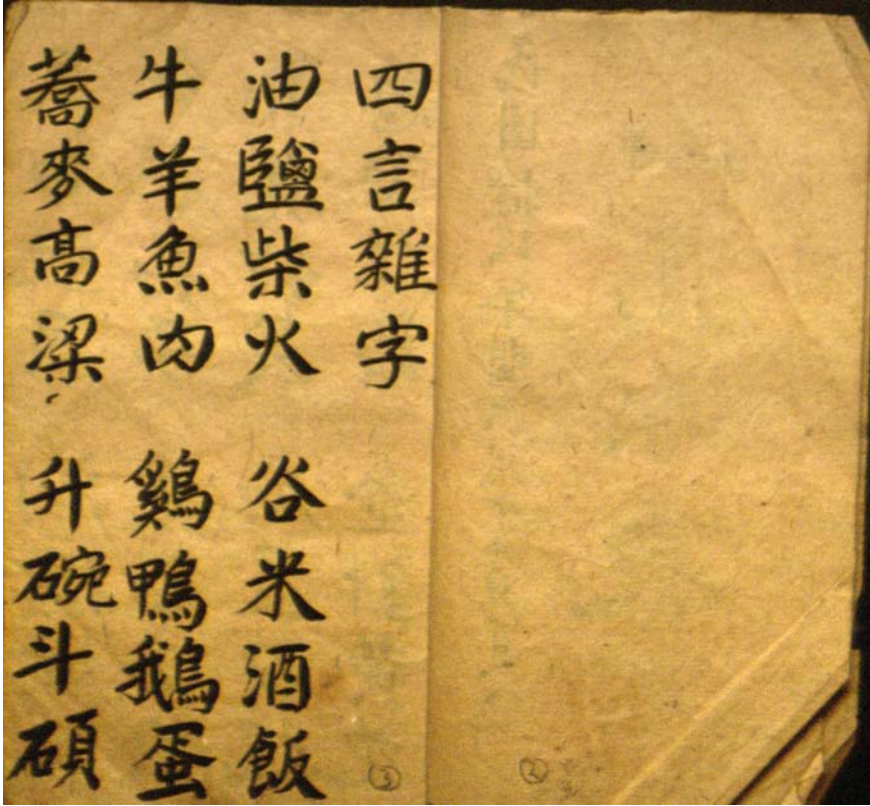 四言雜字
油鹽柴火 谷米酒飯
牛羊魚肉 鷄鴨鵝蛋
蕎麥高梁 升碗斗碩
③
②